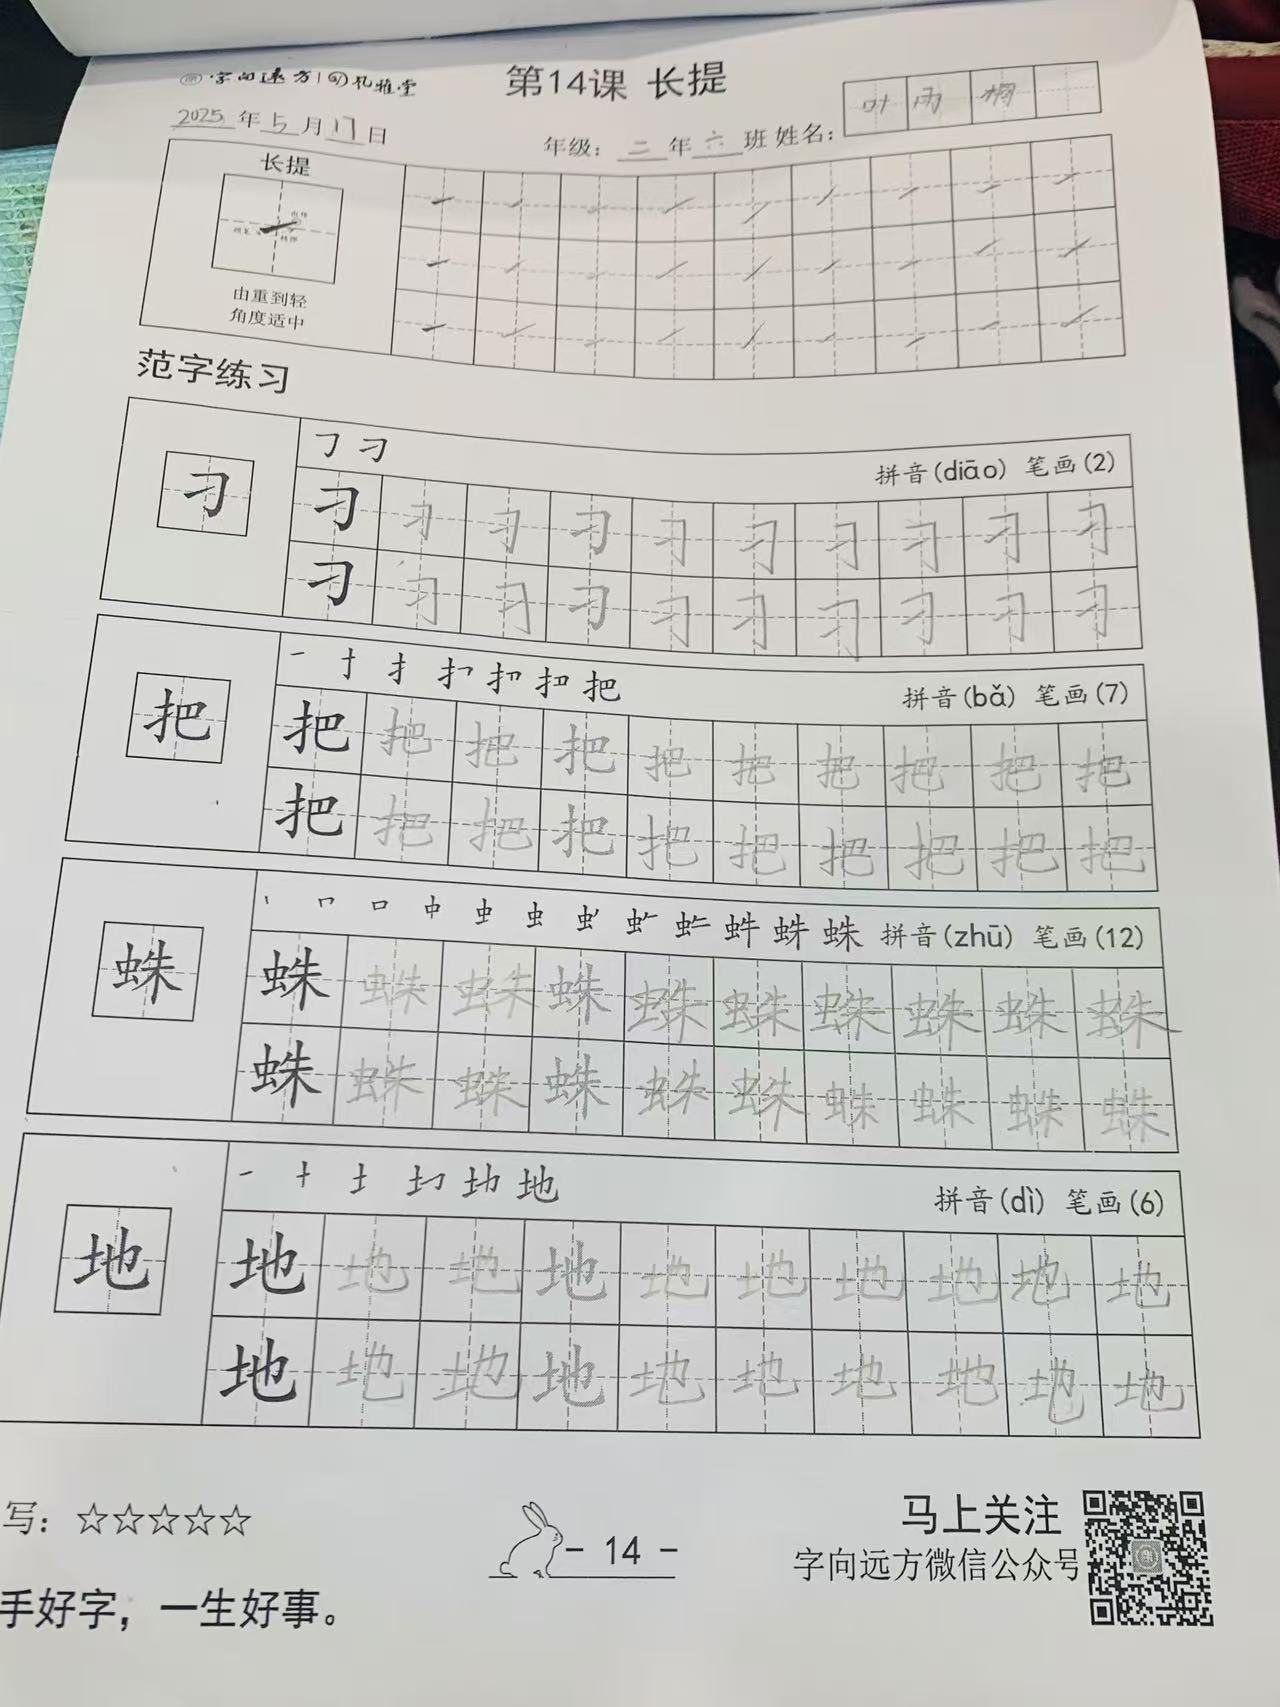 字向远方 | 礼雅堂
第14课 长提
2025年5月17日
年级：二年六班 姓名：叶雨桐
长提
由重到轻
角度适中
范字练习
㇆ 刁
拼音(diāo) 笔画(2)
刁 刁 刁 刁 刁 刁 刁 刁 刁 刁 刁
刁 刁 刁 刁 刁 刁 刁 刁 刁 刁
拼音(bǎ) 笔画(7)
把 把 把 把 把 把 把 把 把 把 把
把 把 把 把 把 把 把 把 把 把
拼音(zhū) 笔画(12)
蛛 蛛 蛛 蛛 蛛 蛛 蛛 蛛 蛛 蛛 蛛
蛛 蛛 蛛 蛛 蛛 蛛 蛛 蛛 蛛 蛛
拼音(dì) 笔画(6)
地 地 地 地 地 地 地 地 地 地 地
地 地 地 地 地 地 地 地 地 地
写：☆☆☆☆☆
- 14 -
马上关注
字向远方微信公众号
手好字，一生好事。